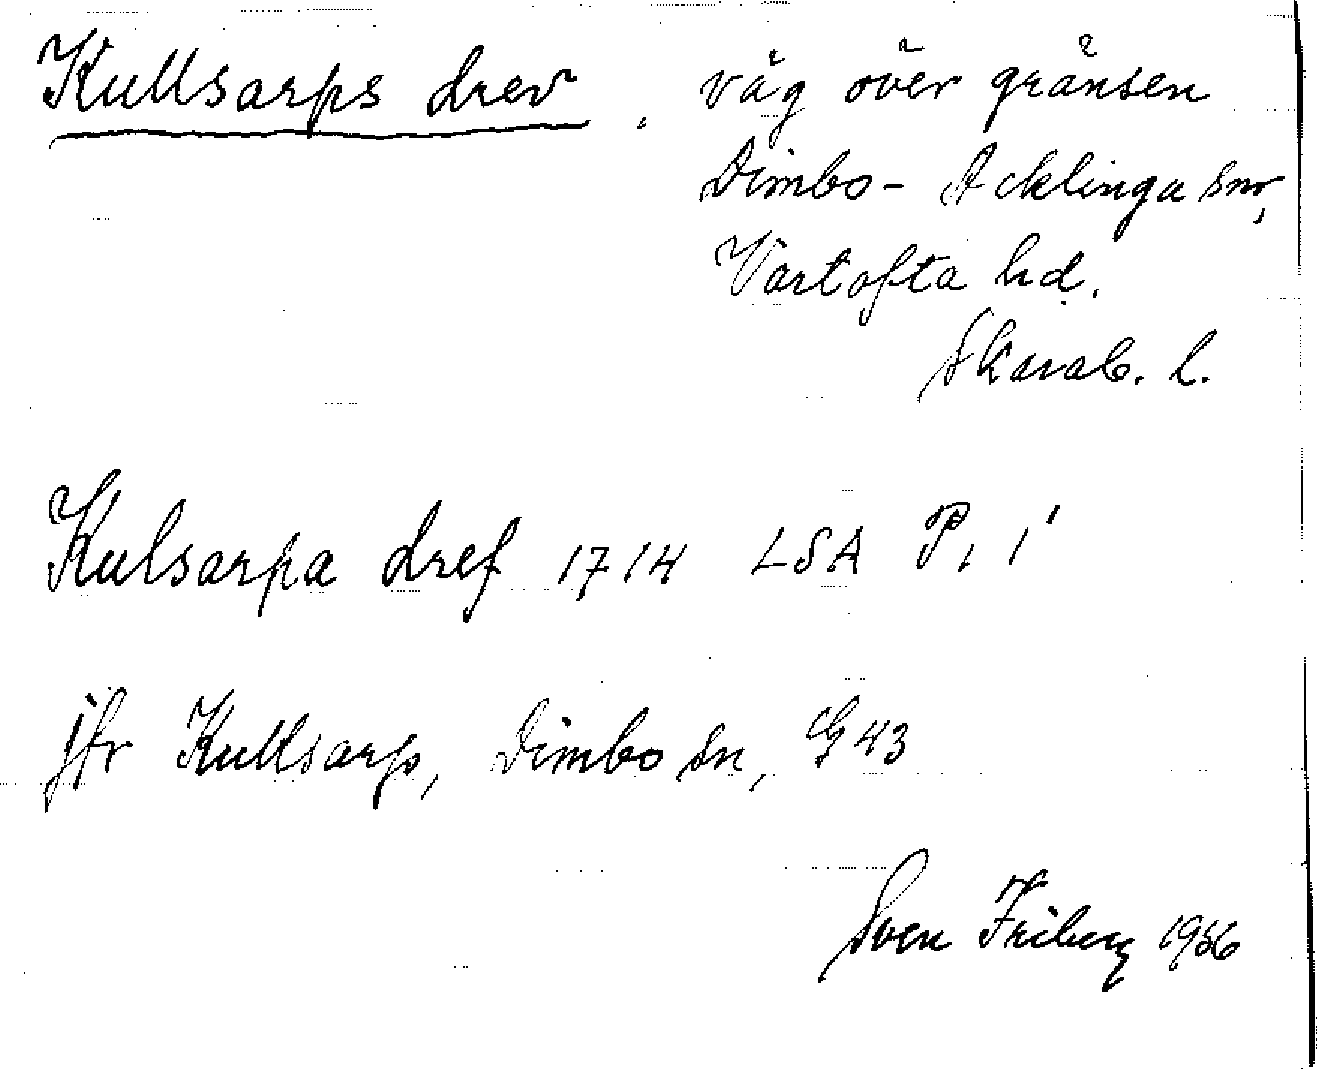 Kullsarps drev. väg över gränsen
Dimbo - Acklinga snr,
Vartofta hd.
Skarab. l.
Kulsarpa dref 1714 LSA P, 1'
jfr Kullsarp, Dimbo sn, G 43
Sven Friberg 1956